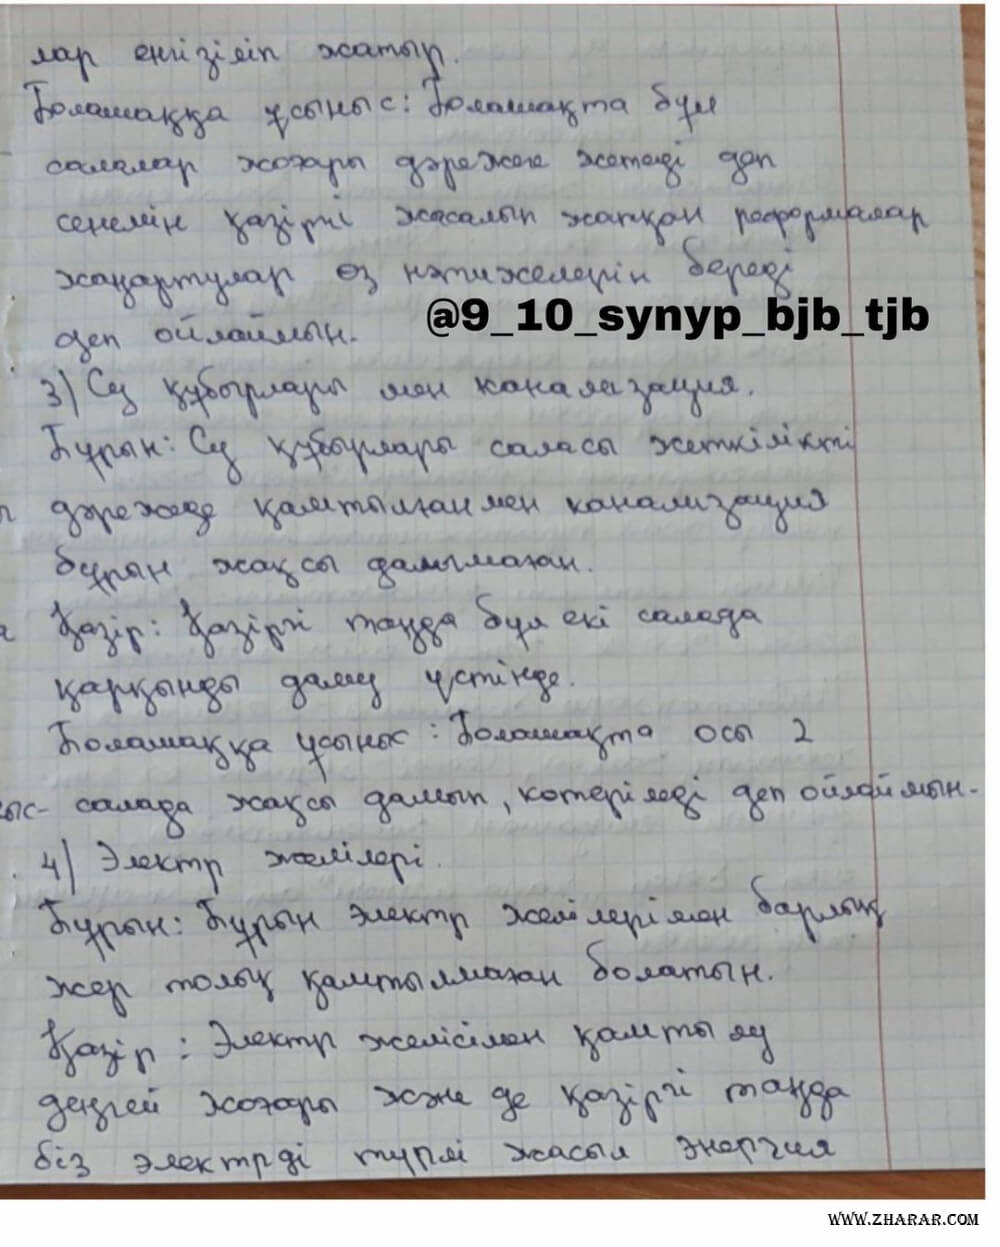 лар енгізіліп жатыр.
Болашаққа ұсыныс: Болашақта бұл
салалар жоғары дәрежеге жетеді деп
сенемін қазіргі жасалып жатқан реформалар
жаңартулар өз нәтижелерін береді
деп ойлаймын.
@9_10_synyp_bjb_tjb
3) Су құбырлары мен канализация.
Бұрын: Су құбырлары саласы жеткілікті
дәрежеде қамтылған мен канализация
бұрын жақсы дамымаған.
Қазір: Қазіргі таңда бұл екі салада
қарқынды даму үстінде.
Болашаққа ұсыныс: Болашақта осы 2
салада жақсы дамып, көтеріледі деп ойлаймын.
4) Электр желілері.
Бұрын: Бұрын электр желілерімен барлық
жер толық қамтылмаған болатын.
Қазір: Электр желісімен қамтылу
деңгей жоғары және де қазіргі таңда
біз электрді түрлі жасыл энергия
WWW.ZHARAR.COM